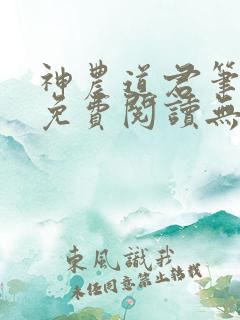 神農道君筆
免費閱讀無
東風識我
未經同意禁止轉載